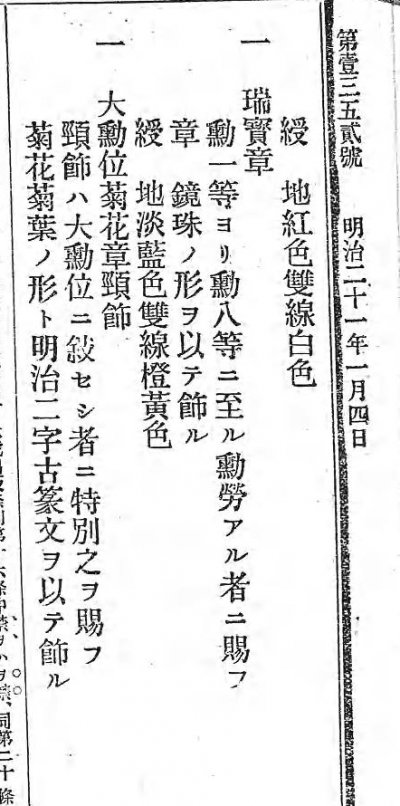 第壹三五貳號　明治二十一年一月四日
綬　地紅色雙線白色
一　瑞寶章
勳一等ヨリ勳八等ニ至ル勳勞アル者ニ賜フ
章　鏡珠ノ形ヲ以テ飾ル
綬　地淡藍色雙線橙黃色
一　大勳位菊花章頸飾
頸飾ハ大勳位ニ敍セシ者ニ特別之ヲ賜フ
菊花菊葉ノ形ト明治二字古篆文ヲ以テ飾ル
同第二十條